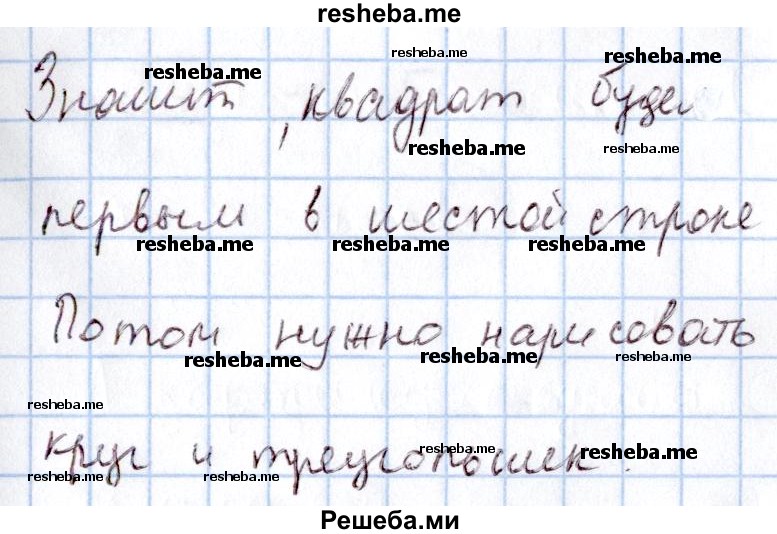 resheba.me
resheba.me resheba.me
resheba.me
Значит, квадрат будет
resheba.me resheba.me
первым в шестой строке
resheba.me resheba.me resheba.me
Потом нужно нарисовать
resheba.me resheba.me resheba.me
resheba.me
круг и треугольник.
resheba.me resheba.me
resheba.me resheba.me
Решеба.ми